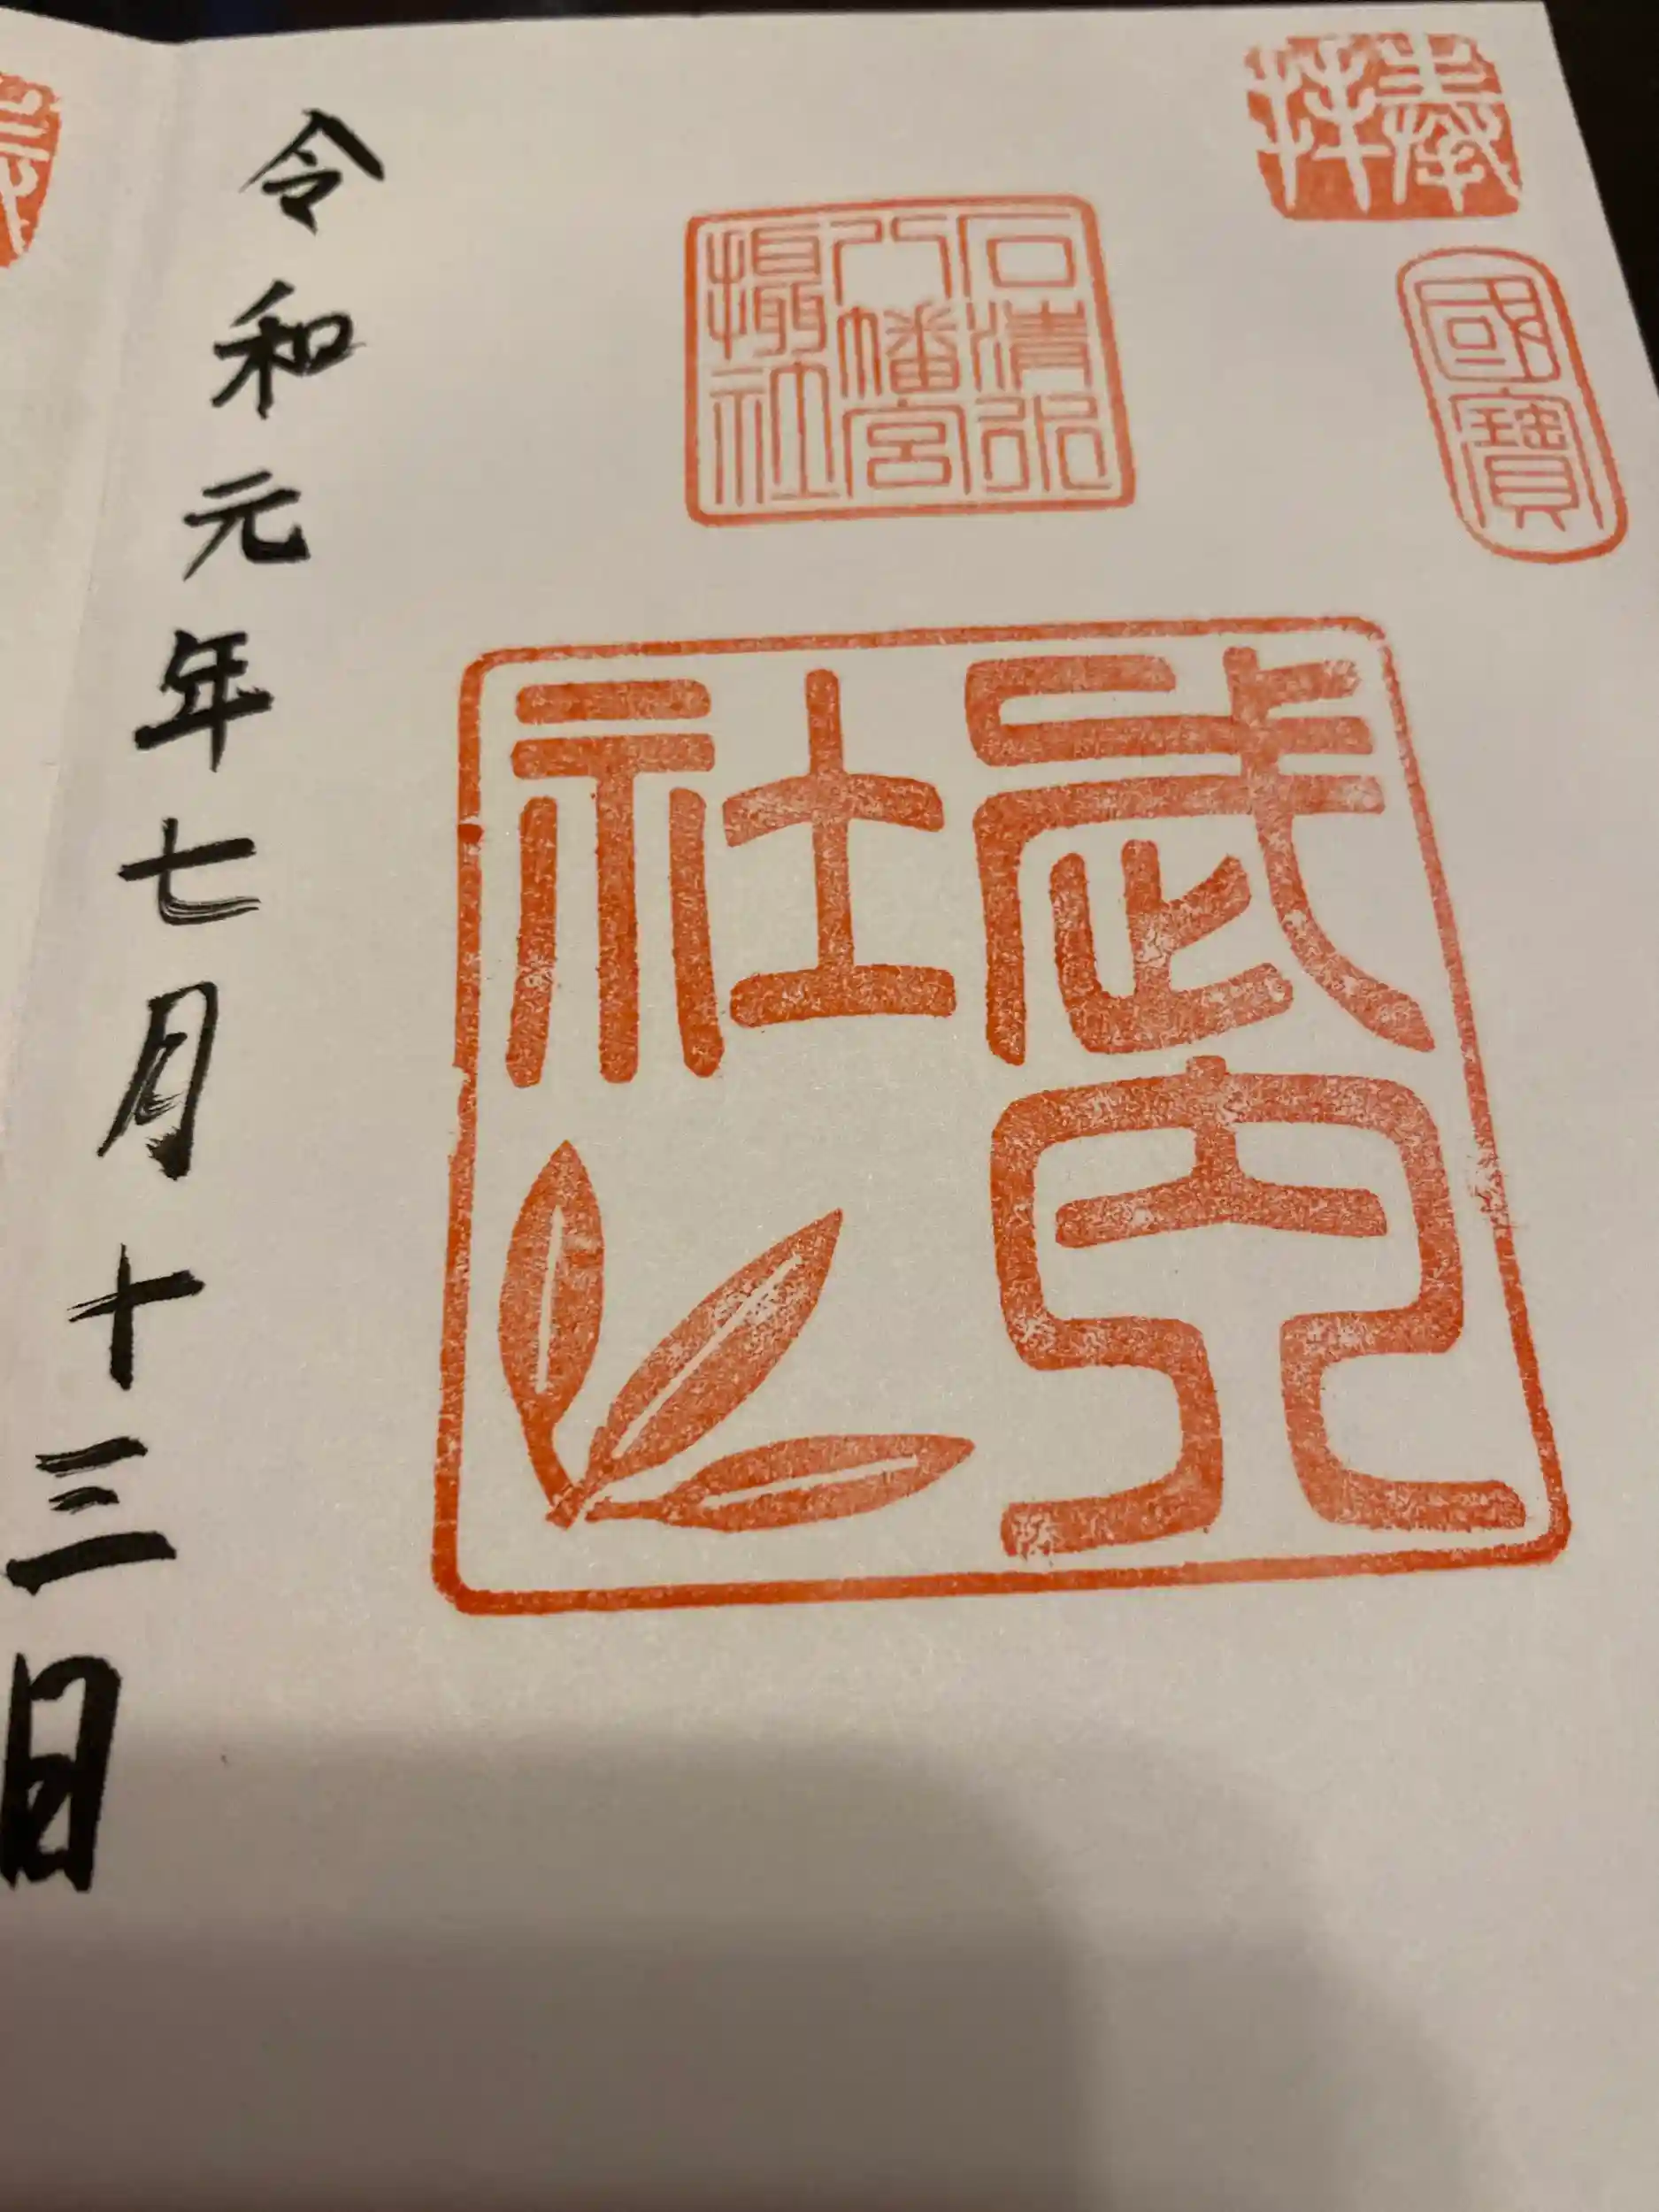 奉拝
國寶
石清水
八幡宮
摂社
武内
社
令和元年七月十三日